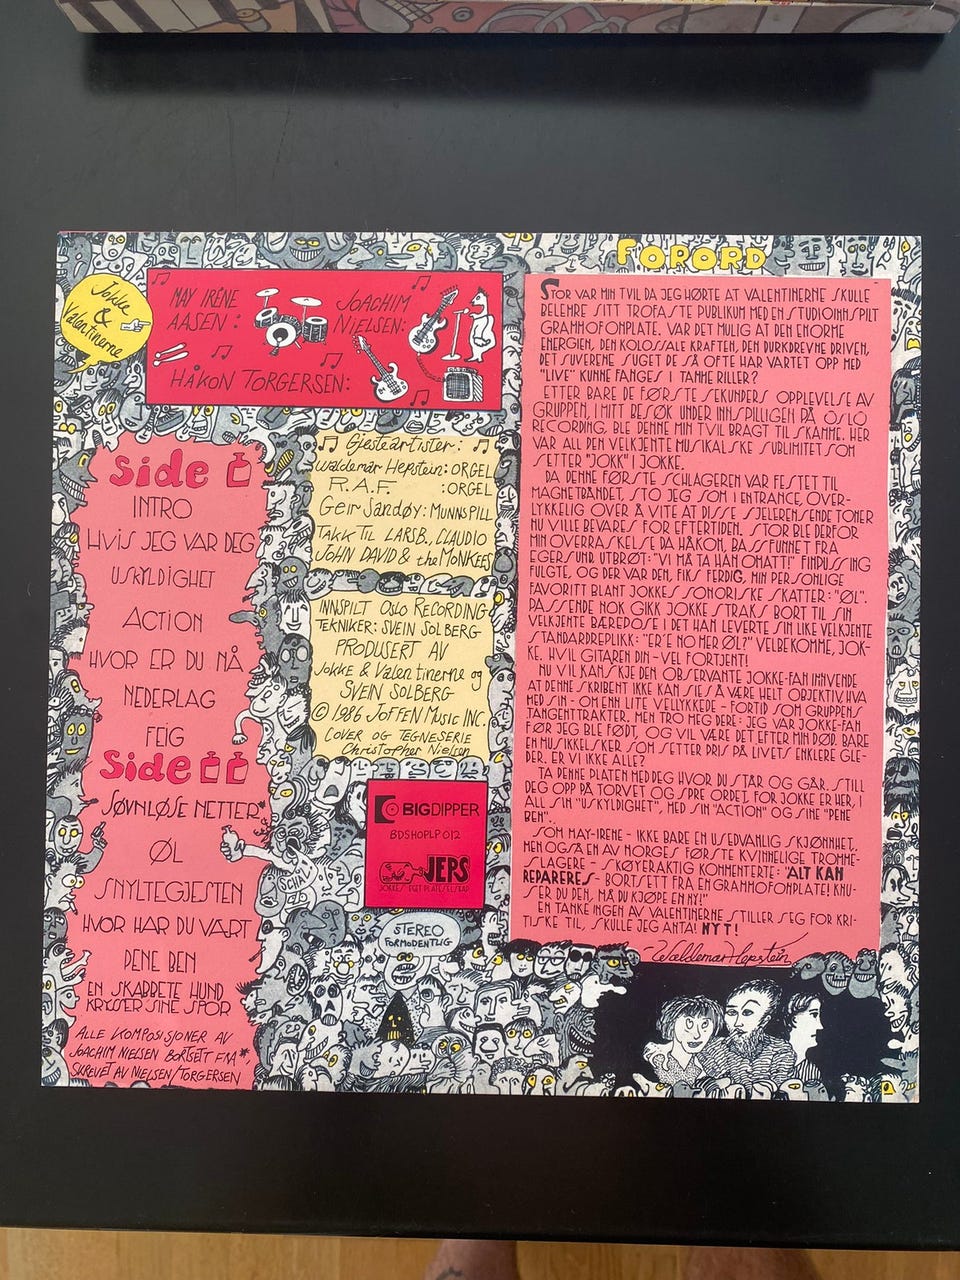 Jokke
&
Valentinerne
MAY IRÉNE
AASEN:
JOACHIM
NIELSEN:
HÅKON TORGERSEN:
Side
INTRO
HVIS JEG VAR DEG
USKYLDIGHET
ACTION
HVOR ER DU NÅ
NEDERLAG
FEIG
Side
SØVNLØSE NETTER*
ØL
SNYLTEGJESTEN
HVOR HAR DU VÆRT
PENE BEN
EN SKABBETE HUND
KRYSSER SINE SPOR
ALLE KOMPOSISJONER AV
JOACHIM NIELSEN BORTSETT FRA*,
SKREVET AV NIELSEN/TORGERSEN
Gjesteartister:
Waldemar Hepstein: ORGEL
R.A.F. :ORGEL
Geir Sandøy: MUNNSPILL
TAKK TIL LARS B., CLAUDIO
JOHN DAVID & the MONKEES
INNSPILT OSLO RECORDING
TEKNIKER: SVEIN SOLBERG
PRODUSERT AV
Jokke & Valentinerne og
SVEIN SOLBERG
© 1986 JOFFEN MUSIC INC.
COVER OG TEGNESERIE
Christopher Nielsen
BIGDIPPER
BDSHOPLP 012
JEPS
JOKKES EGET PLATESELSKAP
SCHALL
STEREO
FORMODENTLIG
FORORD
STOR VAR MIN TVIL DA JEG HØRTE AT VALENTINERNE SKULLE
BELEMRE SITT TROFASTE PUBLIKUM MED EN STUDIOINNSPILT
GRAMMOFONPLATE. VAR DET MULIG AT DEN ENORME
ENERGIEN, DEN KOLOSSALE KRAFTEN, DEN DURKDREVNE DRIVEN,
DET SUVERENE SUGET DE SÅ OFTE HAR VARTET OPP MED
"LIVE" KUNNE FANGES I TAMME RILLER?
ETTER BARE DE FØRSTE SEKUNDERS OPPLEVELSE AV
GRUPPEN, I MITT BESØK UNDER INNSPILLIGEN PÅ OSLO
RECORDING, BLE DENNE MIN TVIL BRAGT TIL SKAMME. HER
VAR ALL DEN VELKJENTE MUSIKALSKE SUBLIMITET SOM
SETTER "JOKK" I JOKKE.
DA DENNE FØRSTE SCHLAGEREN VAR FESTET TIL
MAGNETBÅNDET, STO JEG SOM I ENTRANCE, OVER-
LYKKELIG OVER Å VITE AT DISSE SJELERENSENDE TONER
NU VILLE BEVARES FOR EFTERTIDEN. STOR BLE DERFOR
MIN OVERRASKELSE DA HÅKON, BASSFUNNET FRA
EGERSUND, UTBRØT: "VI MÅ TA HAN OMATT!" FINPUSSING
FULGTE, OG DER VAR DEN, FIKS FERDIG, MIN PERSONLIGE
FAVORITT BLANT JOKKES SONORISKE SKATTER: "ØL".
PASSENDE NOK GIKK JOKKE STRAKS BORT TIL SIN
VELKJENTE BÆREPOSE I DET HAN LEVERTE SIN LIKE VELKJENTE
STANDARDREPLIKK: "ER'E NO MER ØL?" VELBEKOMME, JOK-
KE. HVIL GITAREN DIN - VEL FORTJENT!
NU VIL KANSKJE DEN OBSERVANTE JOKKE-FAN INNVENDE
AT DENNE SKRIBENT IKKE KAN SIES Å VÆRE HELT OBJEKTIV, HVA
MED SIN - OM ENN LITE VELLYKKEDE - FORTID SOM GRUPPENS
TANGENTTRAKTER. MEN TRO MEG DERE: JEG VAR JOKKE-FAN
FØR JEG BLE FØDT, OG VIL VÆRE DET EFTER MIN DØD. BARE
EN MUSIKKELSKER SOM SETTER PRIS PÅ LIVETS ENKLERE GLE-
DER. ER VI IKKE ALLE?
TA DENNE PLATEN MED DEG HVOR DU STÅR OG GÅR. STILL
DEG OPP PÅ TORVET OG SPRE ORDET, FOR JOKKE ER HER, I
ALL SIN "USKYLDIGHET", MED SIN "ACTION" OG SINE "PENE
BEN".
SOM MAY-IRENE - IKKE BARE EN USEDVANLIG SKJØNNHET,
MEN OGSÅ EN AV NORGES FØRSTE KVINNELIGE TROMME-
SLAGERE - SKØYERAKTIG KOMMENTERTE: "ALT KAN
REPARERES - BORTSETT FRA EN GRAMMOFONPLATE! KNU-
SER DU DEN, MÅ DU KJØPE EN NY!"
EN TANKE INGEN AV VALENTINERNE STILLER SEG FOR KRI-
TISKE TIL, SKULLE JEG ANTA! NYT!
Waldemar Hepstein